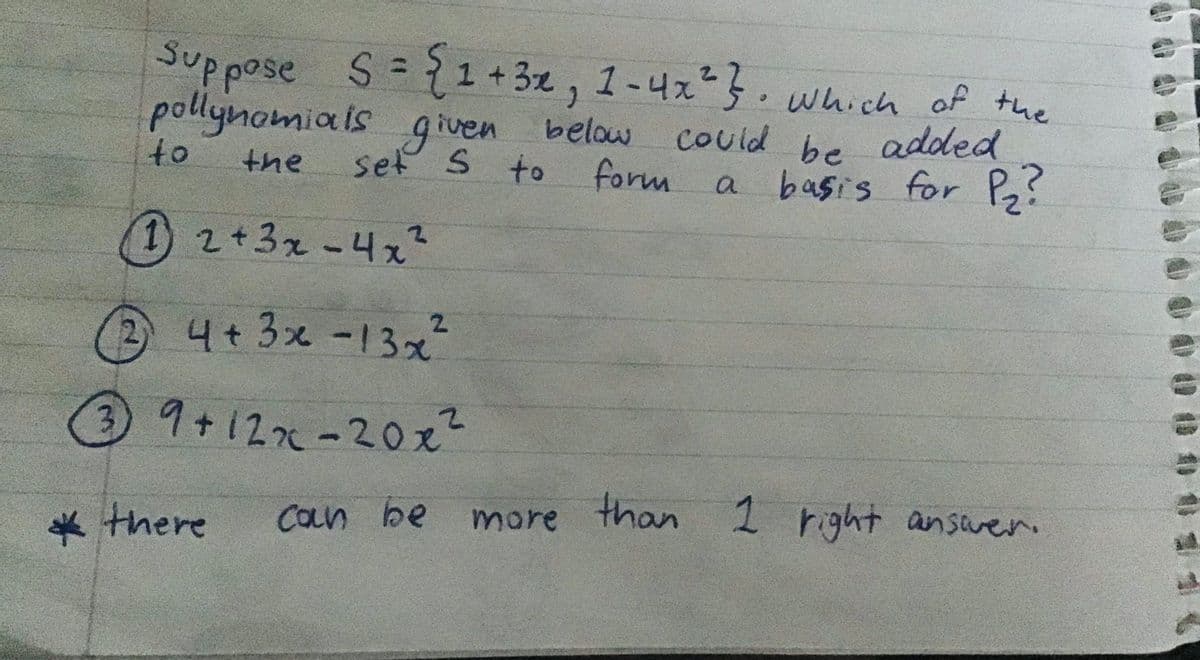 Suppose S = {1+3x, 1-4x²}. which of the
pollynomials given below could be added
to the set S to form a basis for P₂?
① 2+3x-4x²
② 4+3x-13x²
③ 9+12x-20x²
* there can be more than 1 right answer.